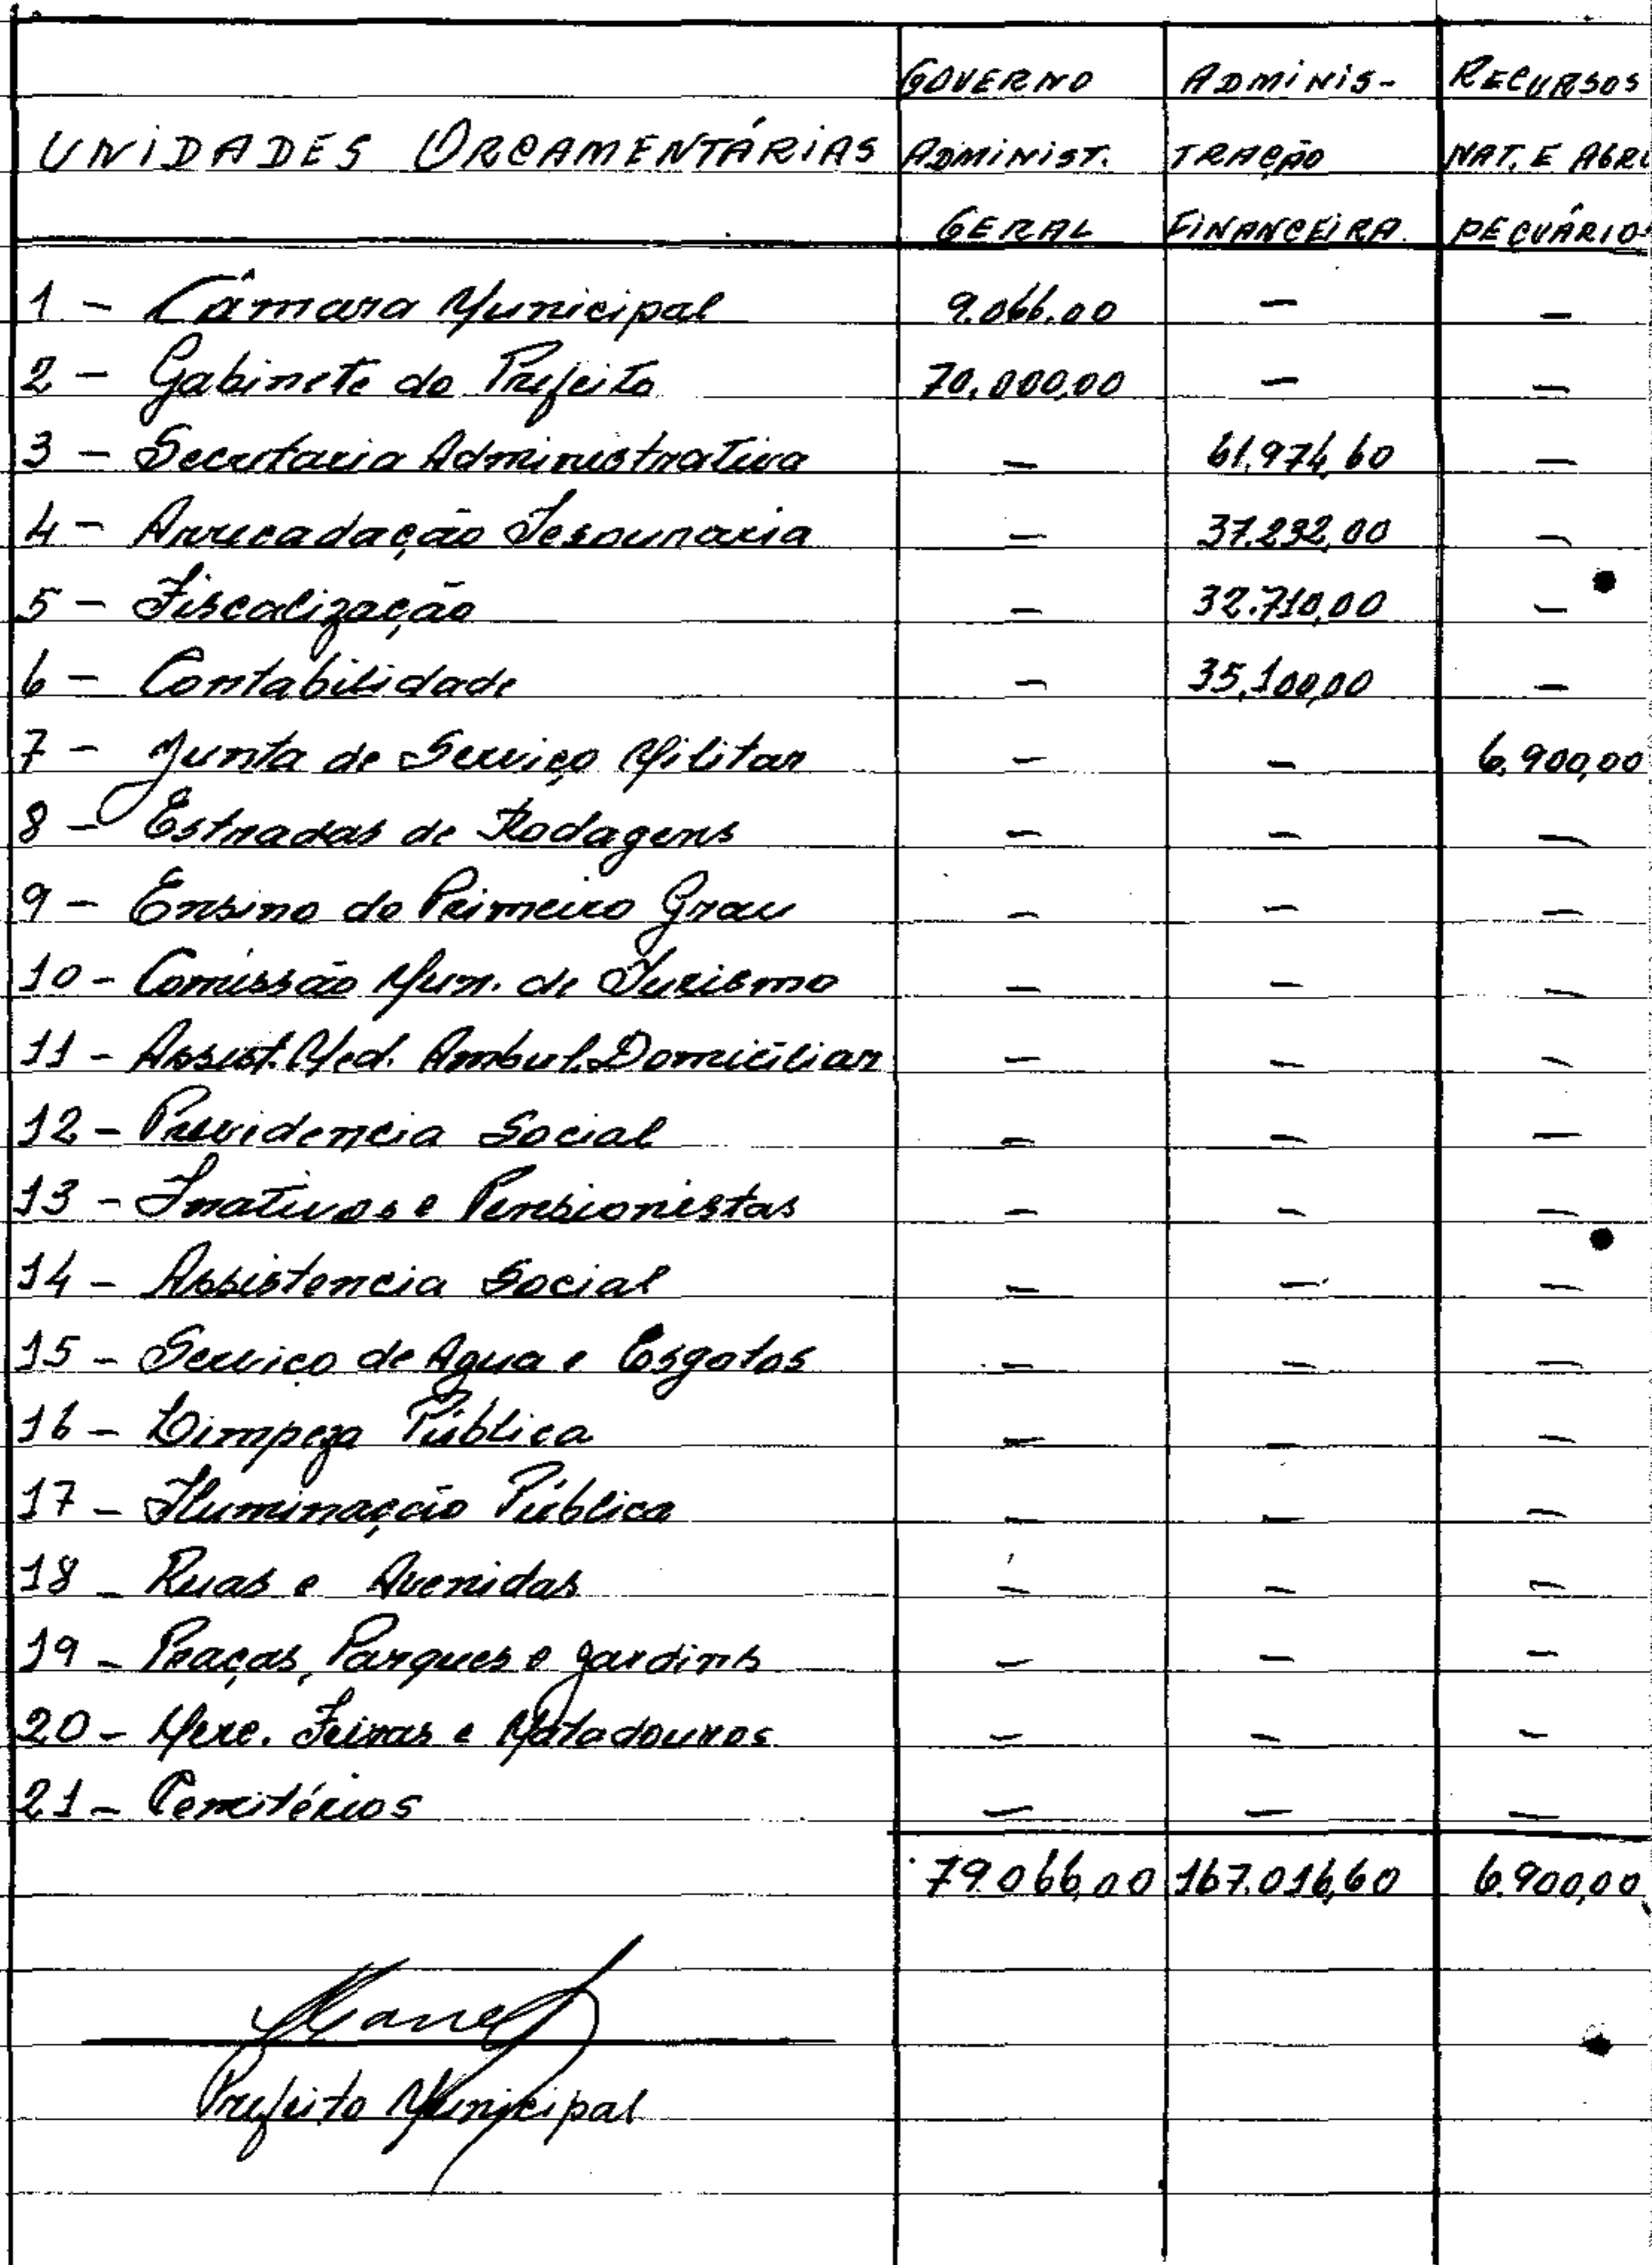 GOVERNO ADMINIS- RECURSOS
UNIDADES ORÇAMENTÁRIAS ADMINIST. TRAÇÃO NAT. E AGRO
GERAL FINANCEIRA. PECUÁRIOS
1 - Câmara Municipal 9.066,00 — —
2 - Gabinete do Prefeito 70.000,00 — —
3 - Secretaria Administrativa — 61.974,60 —
4 - Arrecadação Tesouraria — 37.232,00 —
5 - Fiscalização — 32.710,00 —
6 - Contabilidade — 35.100,00 —
7 - Junta de Serviço Militar — — 6.900,00
8 - Estradas de Rodagens — — —
9 - Ensino do Primeiro Grau — — —
10 - Comissão Mun. de Turismo — — —
11 - Assist. Med. Ambul. Domiciliar — — —
12 - Previdencia Social — — —
13 - Inativos e Pensionistas — — —
14 - Assistencia Social — — —
15 - Serviço de Agua e Esgotos — — —
16 - Limpeza Pública — — —
17 - Iluminação Pública — — —
18 - Ruas e Avenidas — — —
19 - Praças, Parques e Jardins — — —
20 - Merc. Feiras e Matadouros — — —
21 - Cemitérios — — —
79.066,00 167.016,60 6.900,00
Prefeito Municipal